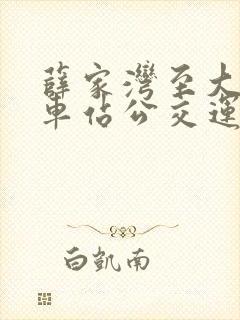 薛家灣至大
車佔公交運
白凱南